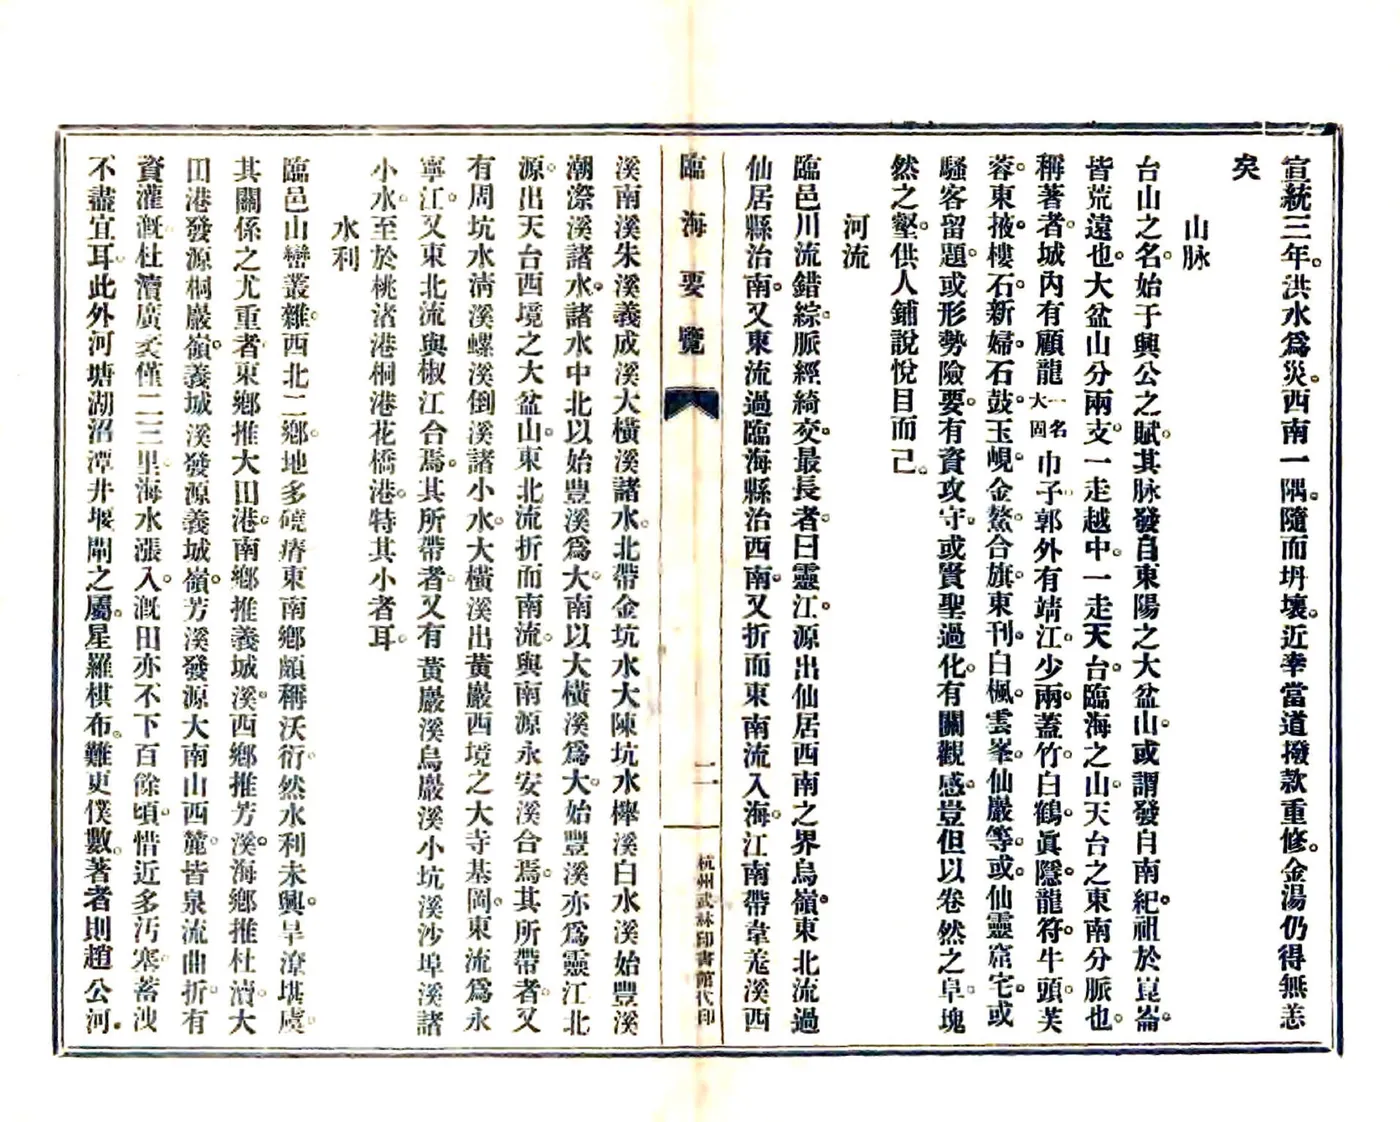 宣統三年。洪水爲災。西南一隅。隨而坍壞。近幸當道撥款重修。金湯仍得無恙
矣
山脉
台山之名。始于興公之賦。其脉發自東陽之大盆山。或謂發自南紀。祖於崑崙。
皆荒遠也。大盆山分兩支。一走越中。一走天台。臨海之山。天台之東南分脈也。
稱著者。城內有顧龍一名大固巾子。郭外有靖江。少兩。蓋竹。白鶴。眞隱。龍符。牛頭。芙
蓉。東掖。樓石。新婦。石鼓。玉峴。金鰲。合旗。東刋。白楓。雲峯。仙巖等。或仙靈窟宅。或
騷客留題。或形勢險要。有資攻守。或賢聖過化。有關觀感。豈但以卷然之阜。塊
然之壑。供人鋪說悅目而已。
河流
臨邑川流錯綜。脈經綺交。最長者曰靈江。源出仙居西南之界烏嶺。東北流過
仙居縣治南。又東流過臨海縣治西南。又折而東南流入海。江南帶韋羗溪西
臨海要覽
二
杭州武林印書館代印
溪南溪朱溪義成溪大橫溪諸水。北帶金坑水大陳坑水櫸溪白水溪始豐溪
潮漈溪諸水。諸水中北以始豐溪爲大。南以大橫溪爲大。始豐溪亦爲靈江北
源。出天台西境之大盆山。東北流折而南流。與南源永安溪合焉。其所帶者。又
有周坑水淸溪螺溪倒溪諸小水。大橫溪出黃巖西境之大寺基岡。東流爲永
寧江。又東北流與椒江合焉。其所帶者。又有黃巖溪烏巖溪小坑溪沙埠溪諸
小水。至於桃渚港桐港花橋港。特其小者耳。
水利
臨邑山巒叢雜。西北二鄉。地多磽瘠。東南鄉頗稱沃衍。然水利未興。旱潦堪虞。
其關係之尤重者。東鄉推大田港。南鄉推義城溪。西鄉推芳溪。海鄉推杜瀆。大
田港發源桐巖嶺。義城溪發源義城嶺。芳溪發源大南山西麓。皆泉流曲折。有
資灌漑。杜瀆廣袤僅二三里。海水漲入。漑田亦不下百餘頃。惜近多汚塞。蓄洩
不盡宜耳。此外河塘湖沼潭井堰閘之屬。星羅棋布。難更僕數。著者則趙公河。